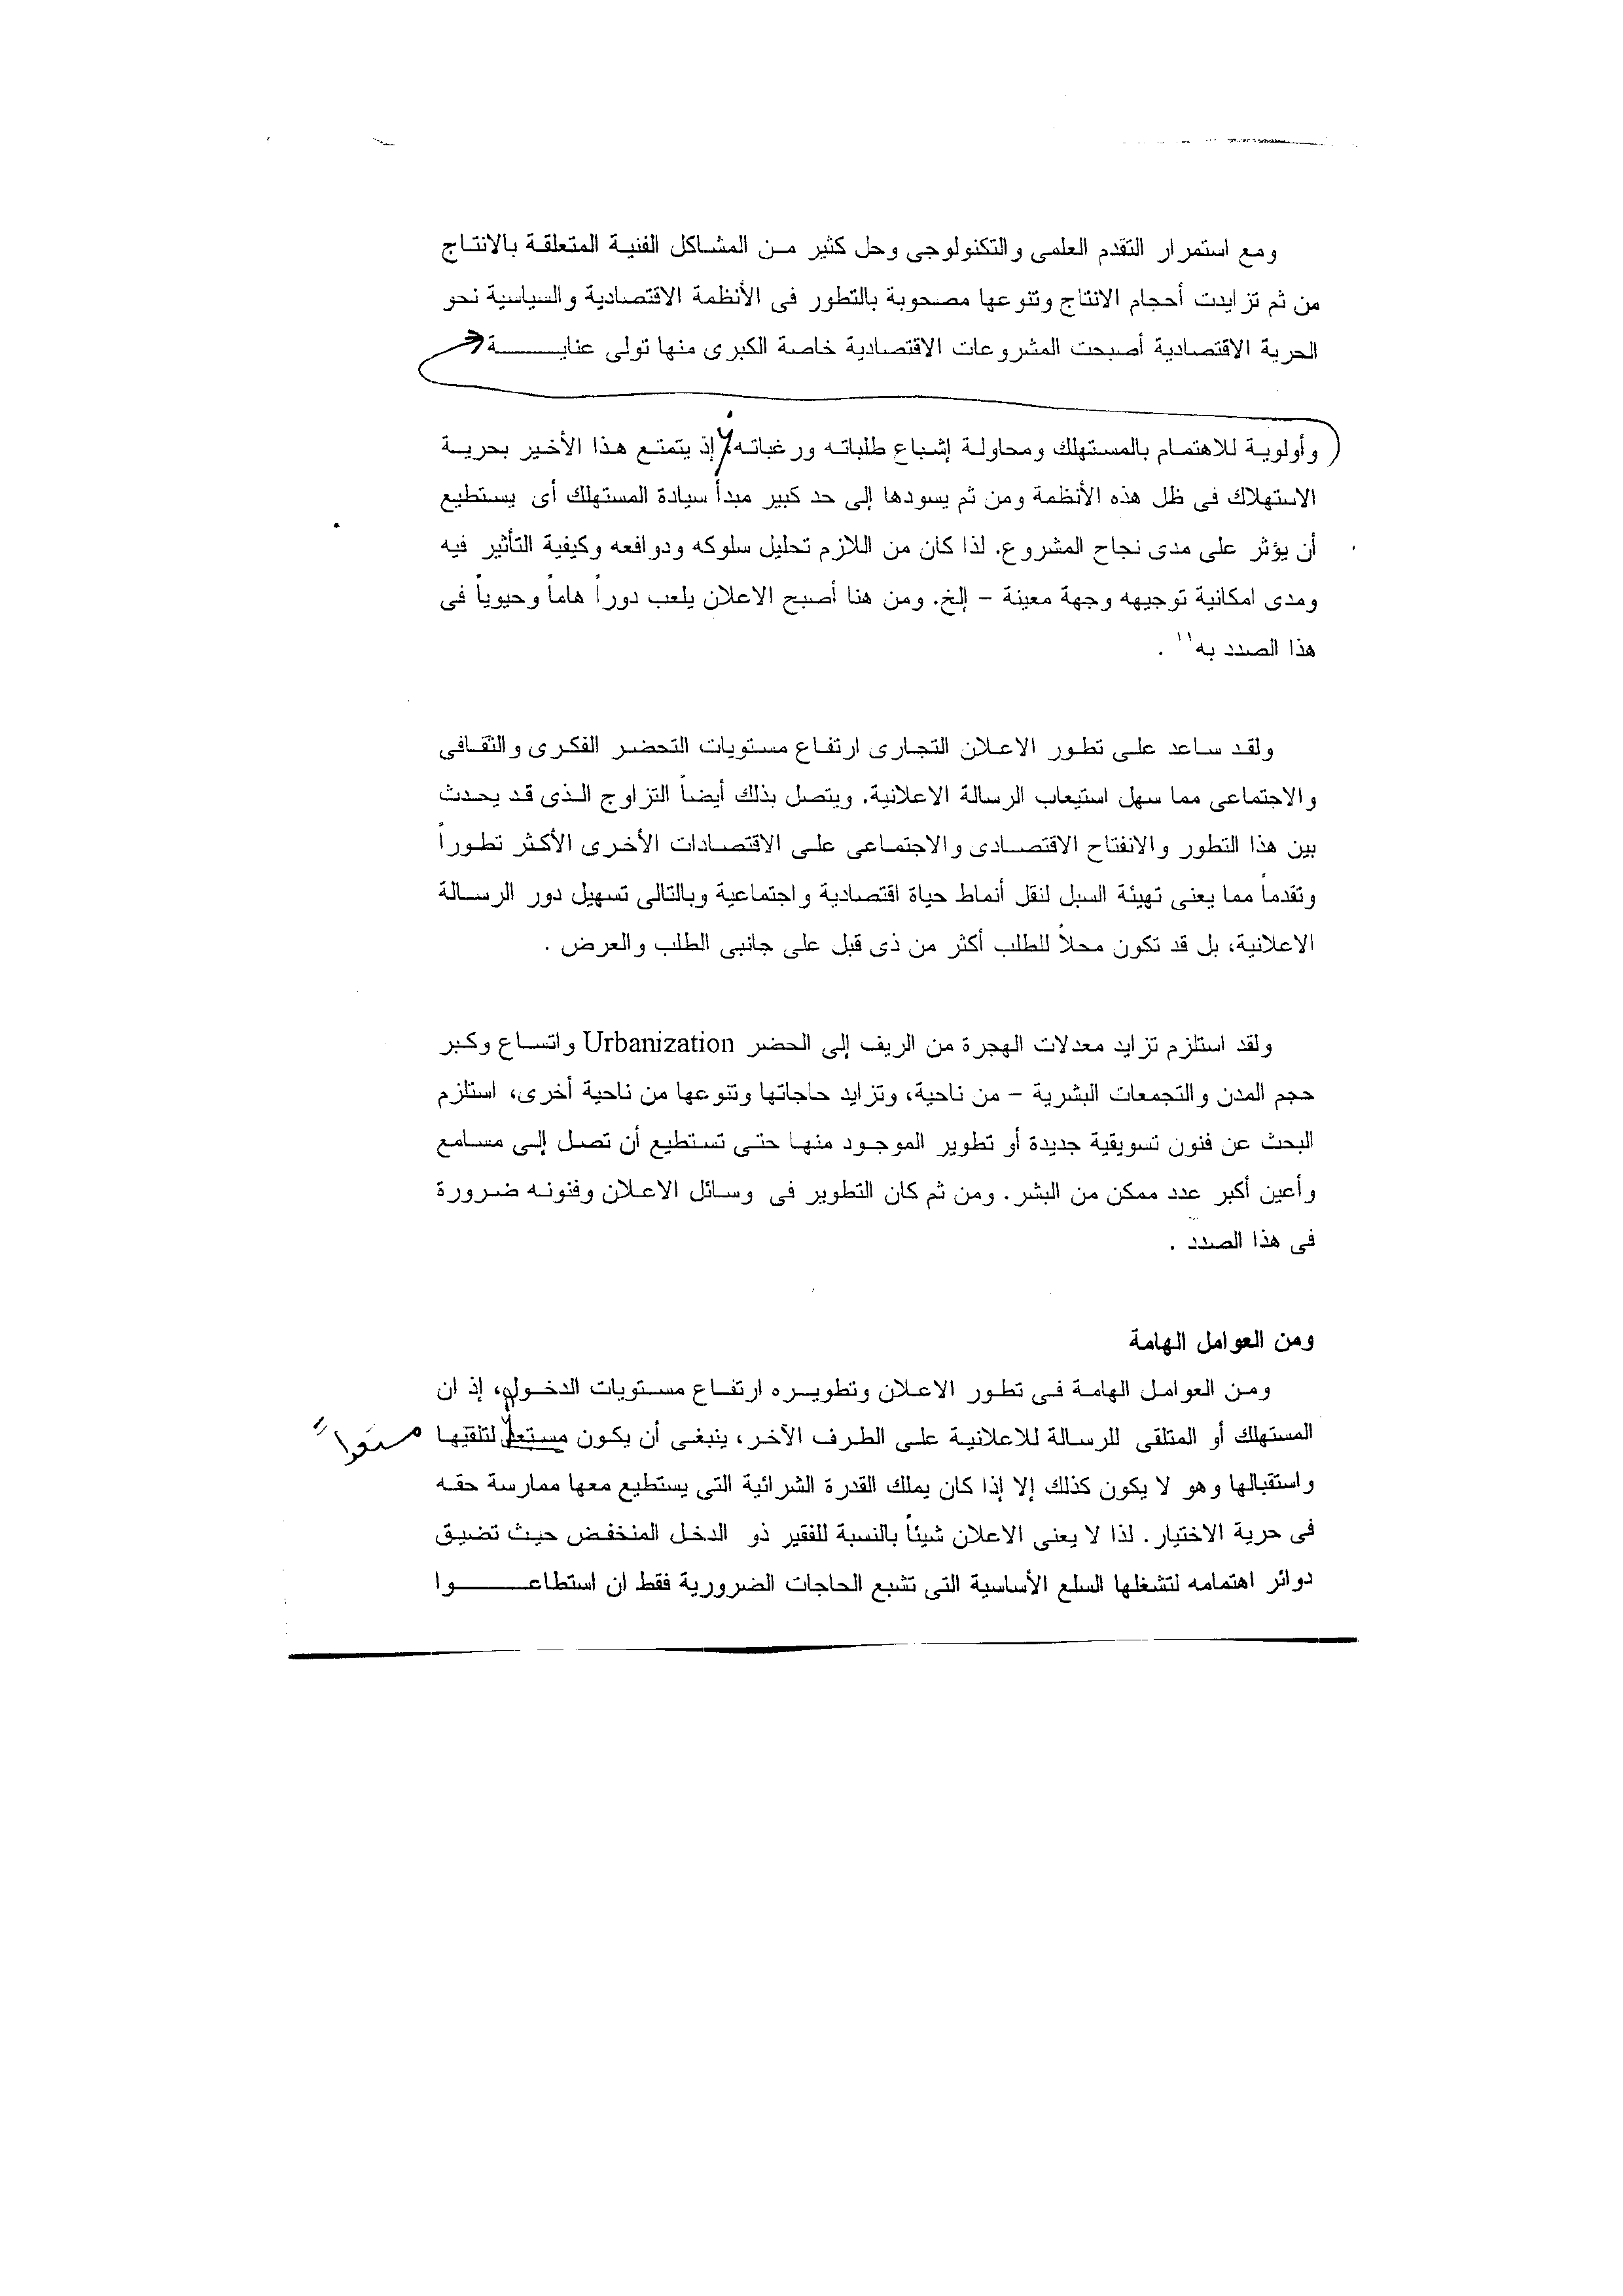 ومع استمرار التقدم العلمى والتكنولوجى وحل كثير من المشاكل الفنية المتعلقة بالانتاج
من ثم تزايدت أحجام الانتاج وتنوعها مصحوبة بالتطور فى الأنظمة الاقتصادية والسياسية نحو
الحرية الاقتصادية أصبحت المشروعات الاقتصادية خاصة الكبرى منها تولى عناية
وأولوية للاهتمام بالمستهلك ومحاولة إشباع طلباته ورغباته، إذ يتمتع هذا الأخير بحرية
الاستهلاك فى ظل هذه الأنظمة ومن ثم يسودها إلى حد كبير مبدأ سيادة المستهلك أى يستطيع
أن يؤثر على مدى نجاح المشروع. لذا كان من اللازم تحليل سلوكه ودوافعه وكيفية التأثير فيه
ومدى امكانية توجيهه وجهة معينة – إلخ. ومن هنا أصبح الاعلان يلعب دوراً هاماً وحيوياً فى
هذا الصدد به١١ .
ولقد ساعد على تطور الاعلان التجارى ارتفاع مستويات التحضر الفكرى والثقافى
والاجتماعى مما سهل استيعاب الرسالة الاعلانية. ويتصل بذلك أيضاً التزاوج الذى قد يحدث
بين هذا التطور والانفتاح الاقتصادى والاجتماعى على الاقتصادات الأخرى الأكثر تطوراً
وتقدماً مما يعنى تهيئة السبل لنقل أنماط حياة اقتصادية واجتماعية وبالتالى تسهيل دور الرسالة
الاعلانية، بل قد تكون محلاً للطلب أكثر من ذى قبل على جانبى الطلب والعرض .
ولقد استلزم تزايد معدلات الهجرة من الريف إلى الحضر Urbanization واتساع وكبر
حجم المدن والتجمعات البشرية – من ناحية، وتزايد حاجاتها وتنوعها من ناحية أخرى، استلزم
البحث عن فنون تسويقية جديدة أو تطوير الموجود منها حتى تستطيع أن تصل إلى مسامع
وأعين أكبر عدد ممكن من البشر. ومن ثم كان التطوير فى وسائل الاعلان وفنونه ضرورة
فى هذا الصدد .
ومن العوامل الهامة
ومن العوامل الهامة فى تطور الاعلان وتطويره ارتفاع مستويات الدخول، إذ ان
المستهلك أو المتلقى للرسالة للاعلانية على الطرف الآخر، ينبغى أن يكون لتلقيها
واستقبالها وهو لا يكون كذلك إلا إذا كان يملك القدرة الشرائية التى يستطيع معها ممارسة حقه
فى حرية الاختيار. لذا لا يعنى الاعلان شيئاً بالنسبة للفقير ذو الدخل المنخفض حيث تضيق
دوائر اهتمامه لتشغلها السلع الأساسية التى تشبع الحاجات الضرورية فقط ان استطاعوا